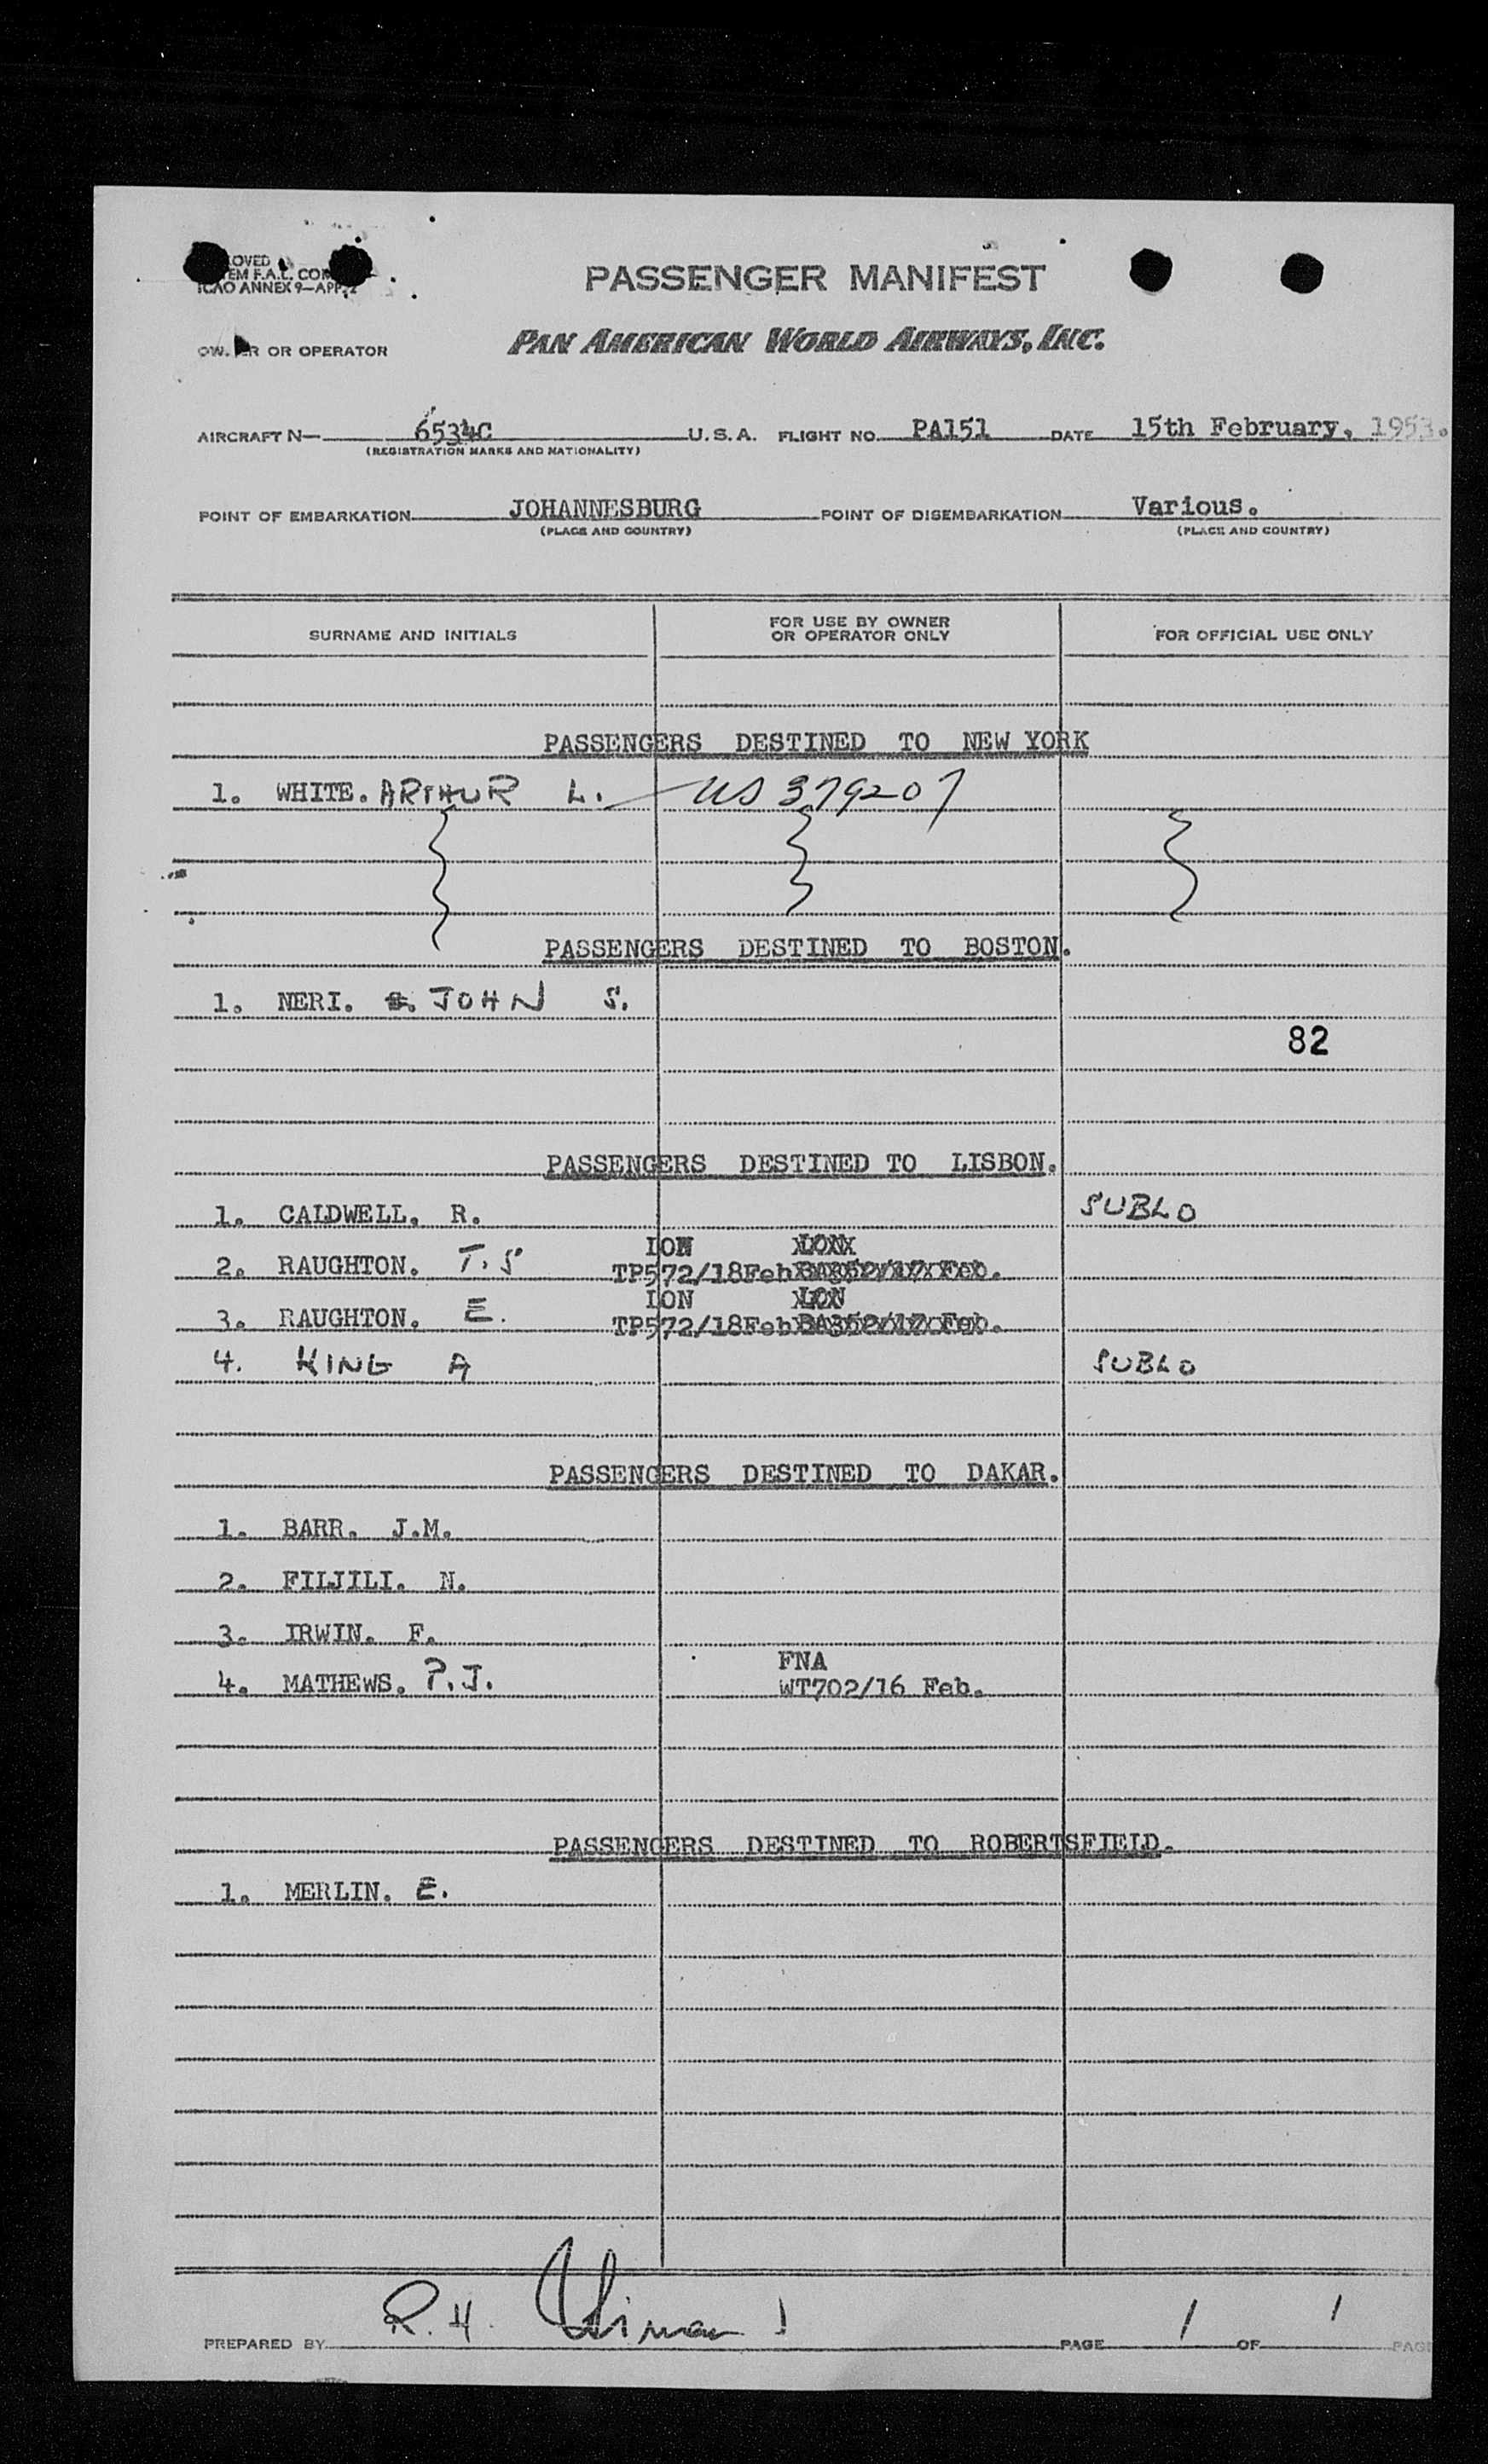 PASSENGER MANIFEST
OVED
EM F.A.L. COM
ICAO ANNEX 9—APP. 2
OWNER OR OPERATOR
PAN AMERICAN WORLD AIRWAYS, INC.
AIRCRAFT N— 6534C U.S.A. FLIGHT NO. PA151 DATE 15th February, 1953.
(REGISTRATION MARKS AND NATIONALITY)
POINT OF EMBARKATION JOHANNESBURG POINT OF DISEMBARKATION Various.
(PLACE AND COUNTRY) (PLACE AND COUNTRY)
SURNAME AND INITIALS FOR USE BY OWNER OR OPERATOR ONLY FOR OFFICIAL USE ONLY
PASSENGERS DESTINED TO NEW YORK
1. WHITE. ARTHUR L. US 379207
PASSENGERS DESTINED TO BOSTON.
1. NERI. JOHN S.
82
PASSENGERS DESTINED TO LISBON.
1. CALDWELL. R. SUBLO
LON LON
2. RAUGHTON. T.S TP572/18Feb BA352/17 Feb.
LON LON
3. RAUGHTON. E. TP572/18Feb BA352/17 Feb.
4. KING A SUBLO
PASSENGERS DESTINED TO DAKAR.
1. BARR. J.M.
2. FILJILI. N.
3. IRWIN. F.
FNA
4. MATHEWS. P.J. WT702/16 Feb.
PASSENGERS DESTINED TO ROBERTSFIELD.
1. MERLIN. E.
PREPARED BY R.H. PAGE 1 OF 1 PAG